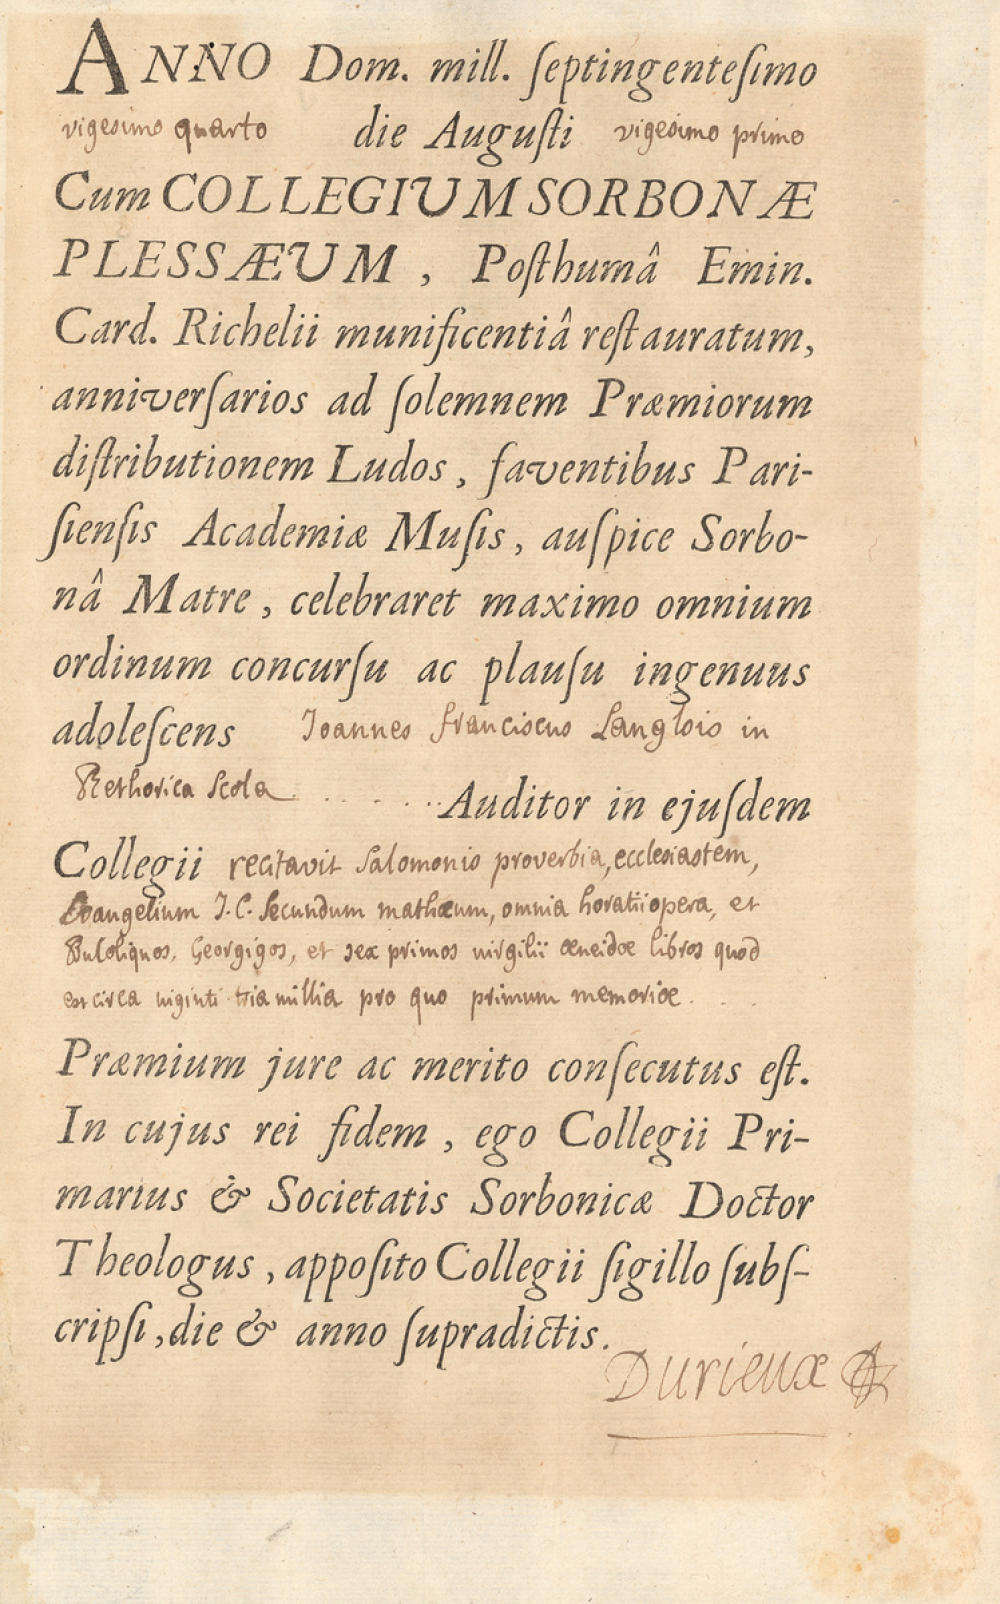 ANNO Dom. mill. ſeptingenteſimo
vigesimo quarto die Auguſti vigesimo primo
Cum COLLEGIUM SORBONÆ
PLESSÆUM, Poſthumâ Emin.
Card. Richelii munificentiâ reſtauratum,
anniverſarios ad ſolemnem Præmiorum
diſtributionem Ludos, faventibus Pari-
ſienſis Academiæ Muſis, auſpice Sorbo-
nâ Matre, celebraret maximo omnium
ordinum concurſu ac plauſu ingenuus
adoleſcens Joannes franciscus Langlois in
Rethorica Scola ........ Auditor in ejuſdem
Collegii recitavit Salomonis proverbia, ecclesiastem,
Evangelium J.C. Secundum mathæum, omnia horatii opera, et
Bulcoliquos, Georgigos, et sex primos virgilii æneidæ libros quod
est circa viginti tria millia pro quo primum memoriæ . . .
Præmium jure ac merito conſecutus eſt.
In cujus rei fidem, ego Collegii Pri-
marius & Societatis Sorbonicæ Doctor
Theologus, appoſito Collegii ſigillo ſubſ-
cripſi, die & anno ſupradictis.
Durieux